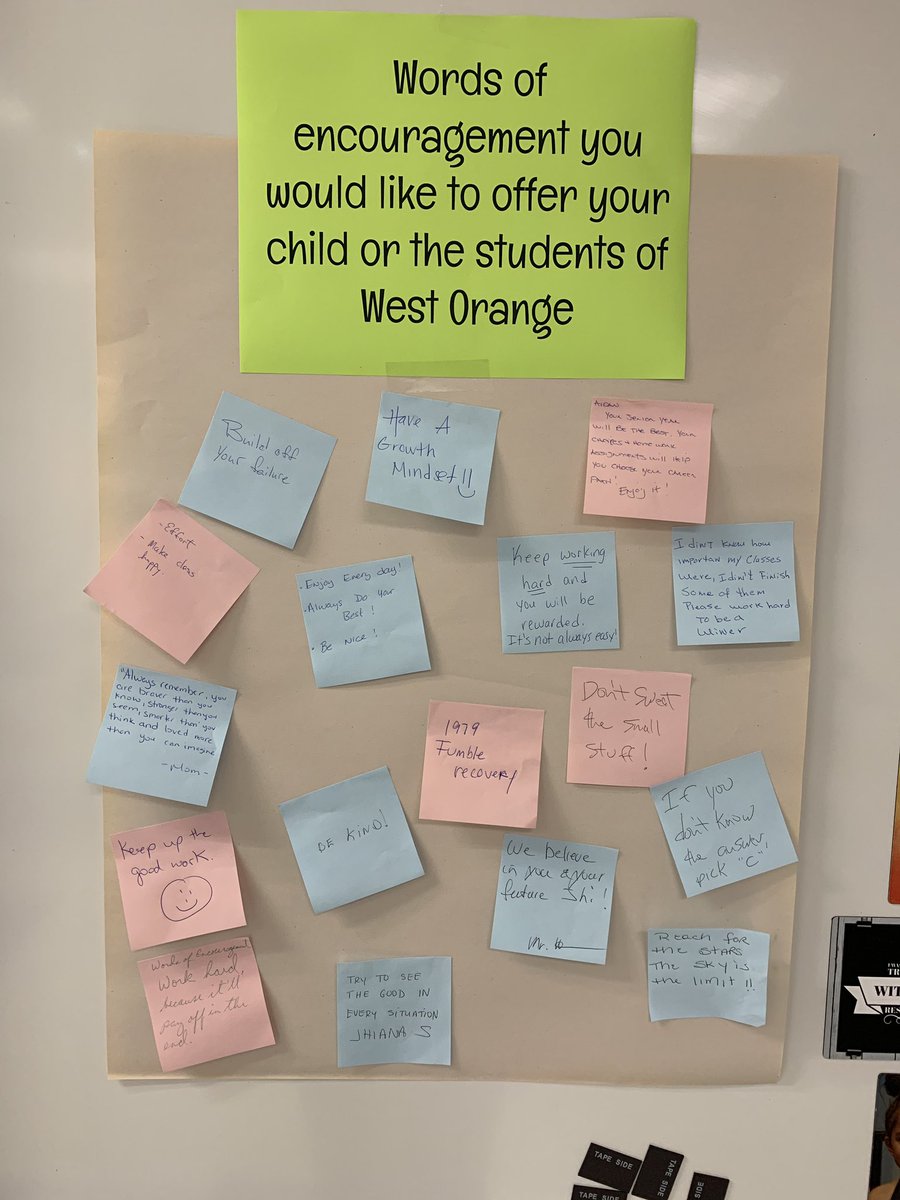 Words of
encouragement you
would like to offer your
child or the students of
West Orange
Build off
Your failure
Have A
Growth
Mindset!!
AIDAN
Your Senior year
will Be The Best. Your
choices + Home work
Assignments will Help
you choose your career
Path!
Enjoy it!
- Effort
- Make class
happy.
• Enjoy Every day!
• Always Do Your
Best!
• Be Nice!
Keep working
hard and
you will be
rewarded.
It's not always easy!
I didn't know how
importan my Classes
were, I didn't Finish
Some of them
Please work hard
To be a
Winer
"Always remember, you
are braver than you
know, stronger than you
seem, smarter than you
think and loved more
than you can imagine
- Mom -
1979
Fumble
recovery
Don't Sweat
the small
stuff!
Keep up the
good work.
BE KIND!
We believe
in you & your
feature Shi!
Mr.
If you
don't know
the answer,
pick "C"!
Words of Encouragement
Work hard,
because it'll
pay off in the
end!
TRY TO SEE
THE GOOD IN
EVERY SITUATION
JHIANA S
Reach for
the STARS
The Sky is
the limit!!
WIT
RES
TAPE SIDE
TAPE SIDE
SIDE
TAPE SIDE